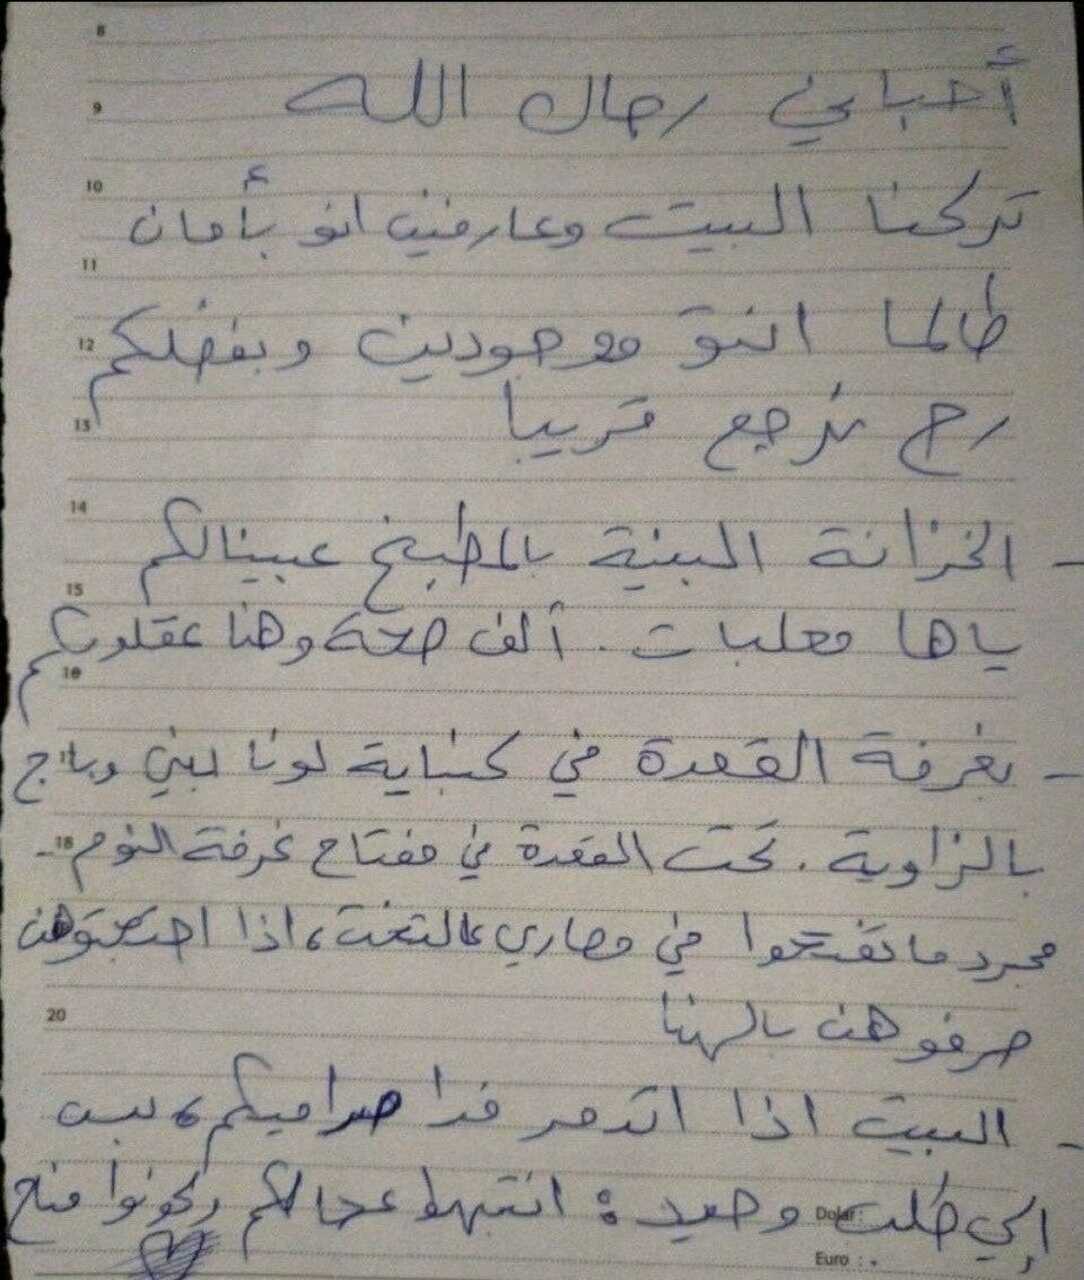 8
أحبابي رجال الله
9
10
تركنا البيت وعارفين انو بأمان
11
طالما انتو موجودين وبفضلكم
12
رح نرجع قريبا
13
14
- الخزانة البنية بالمطبخ عبينالكم
15
ياها معلبات. ألف صحة وهنا عقلوبكم
16
- بغرفة القعدة في كنباية لونا بني وباج
بالزاوية. تحت القعدة في مفتاح غرفة النوم -
18
مجرد ما تفتحوا في مصاري عالتخت، اذا احتجتوهن
صرفوهن بالهنا
20
- البيت اذا اتدمر فدا صراميكم، بس
إلي طلب وحيد: انتبهوا عحالكم وكونوا مناح
Dolar :
Euro : .